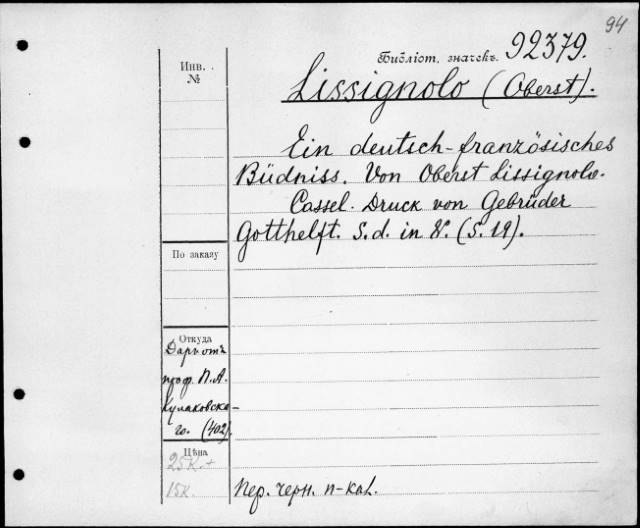 94
Библіот. значекъ. 92379.
Инв.
№
Lissignolo (Oberst).
Ein deutsch-französisches
Büdniss. Von Oberst Lissignolo.
Cassel. Druck von Gebrüder
Gotthelft. S.d. in 8°. (S. 19).
По заказу
Откуда
Даръ отъ
проф. П.А.
Кулаковска-
го. (402).
Цѣна
25к.+
15к.
Пер. черн. п-кал.